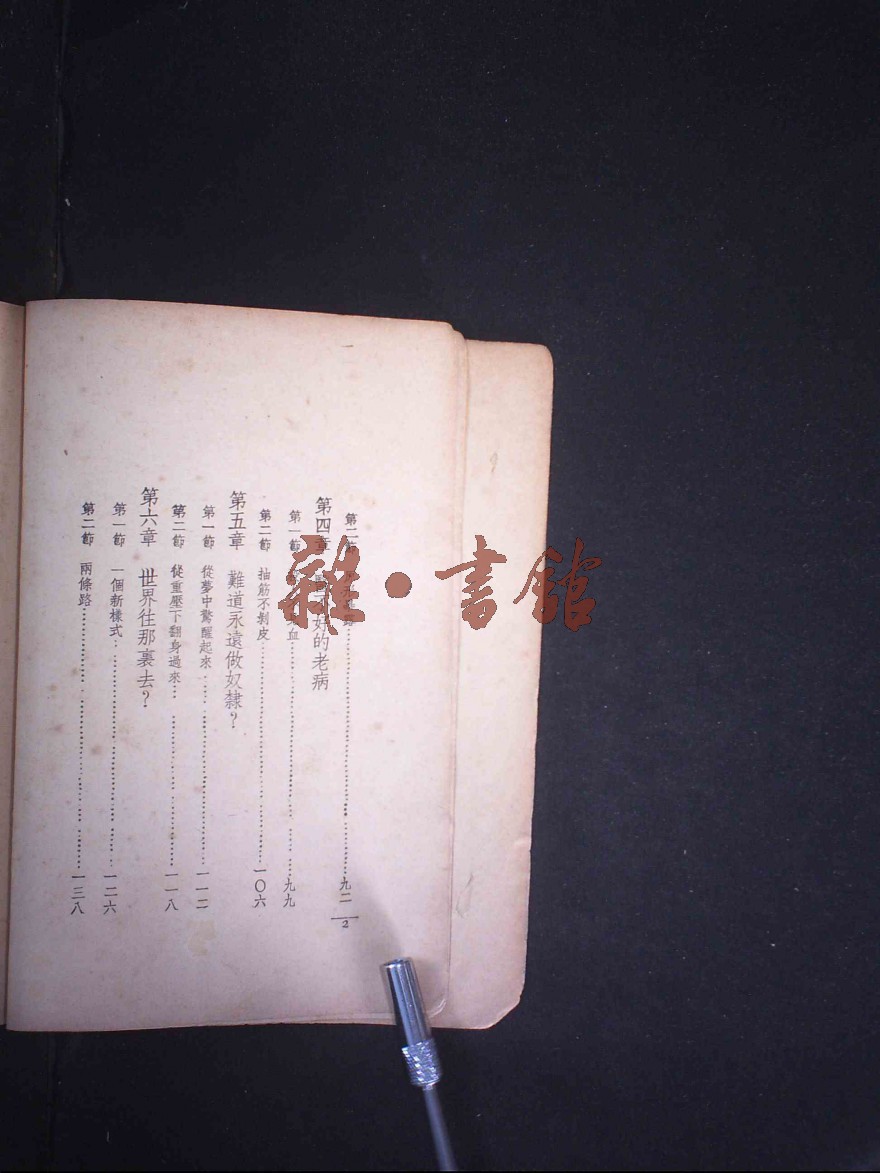 一
第二節……九二
2
第四章 好的老病
第一節 血……九九
第二節 抽筋不剝皮……一〇六
第五章 難道永遠做奴隸？
第一節 從夢中驚醒起來……一一二
第二節 從重壓下翻身過來……一一八
第六章 世界往那裏去？
第一節 一個新樣式……一二六
第二節 兩條路……一三八
雜・書館